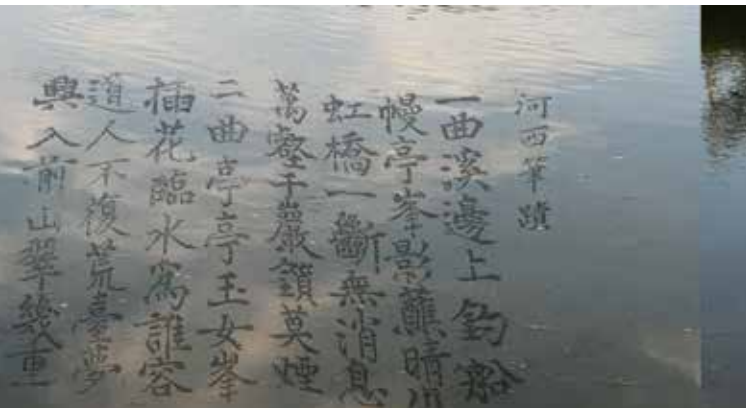 河西筆蹟
一曲溪邊上釣船
幔亭峯影蘸晴川
虹橋一斷無消息
萬壑千巖鎖莫煙
二曲亭亭玉女峯
插花臨水爲誰容
道人不復荒臺夢
興入前山翠幾重